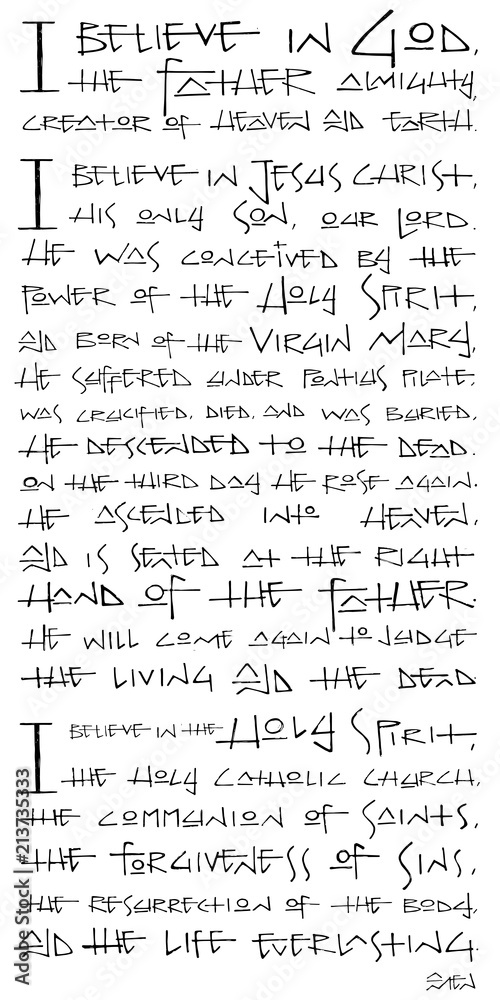 I BELIEVE IN GOD,
THE FATHER ALMIGHTY,
CREATOR OF HEAVEN AND EARTH.
I BELIEVE IN JESUS CHRIST,
HIS ONLY SON, OUR LORD.
HE WAS CONCEIVED BY THE
POWER OF THE HOLY SPIRIT,
AND BORN OF THE VIRGIN MARY,
HE SUFFERED UNDER PONTIUS PILATE,
WAS CRUCIFIED, DIED, AND WAS BURIED,
HE DESCENDED TO THE DEAD.
ON THE THIRD DAY HE ROSE AGAIN.
HE ASCENDED INTO HEAVEN,
AND IS SEATED AT THE RIGHT
HAND OF THE FATHER.
HE WILL COME AGAIN TO JUDGE
THE LIVING AND THE DEAD.
I BELIEVE IN THE HOLY SPIRIT,
THE HOLY CATHOLIC CHURCH,
THE COMMUNION OF SAINTS,
THE FORGIVENESS OF SINS,
THE RESURRECTION OF THE BODY,
AND THE LIFE EVERLASTING.
AMEN
Adobe Stock | #213735333